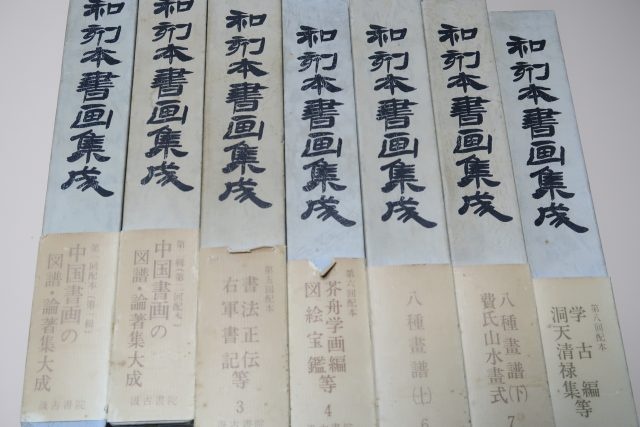 和刻本書画集成
第一回配本(第一輯)
中国書画の
図譜・論著集大成
汲古書院
和刻本書画集成
中国書画の
図譜・論著集大成
汲古書院
和刻本書画集成
第五回配本
書法正伝
右軍書記等
3
汲古書院
和刻本書画集成
第六回配本
芥舟学画編
図絵宝鑑等
4
汲古書院
和刻本書画集成
八種畫譜(上)
6
和刻本書画集成
八種畫譜(下)
費氏山水畫式
7
和刻本書画集成
第八回配本
学古編
洞天清禄集等